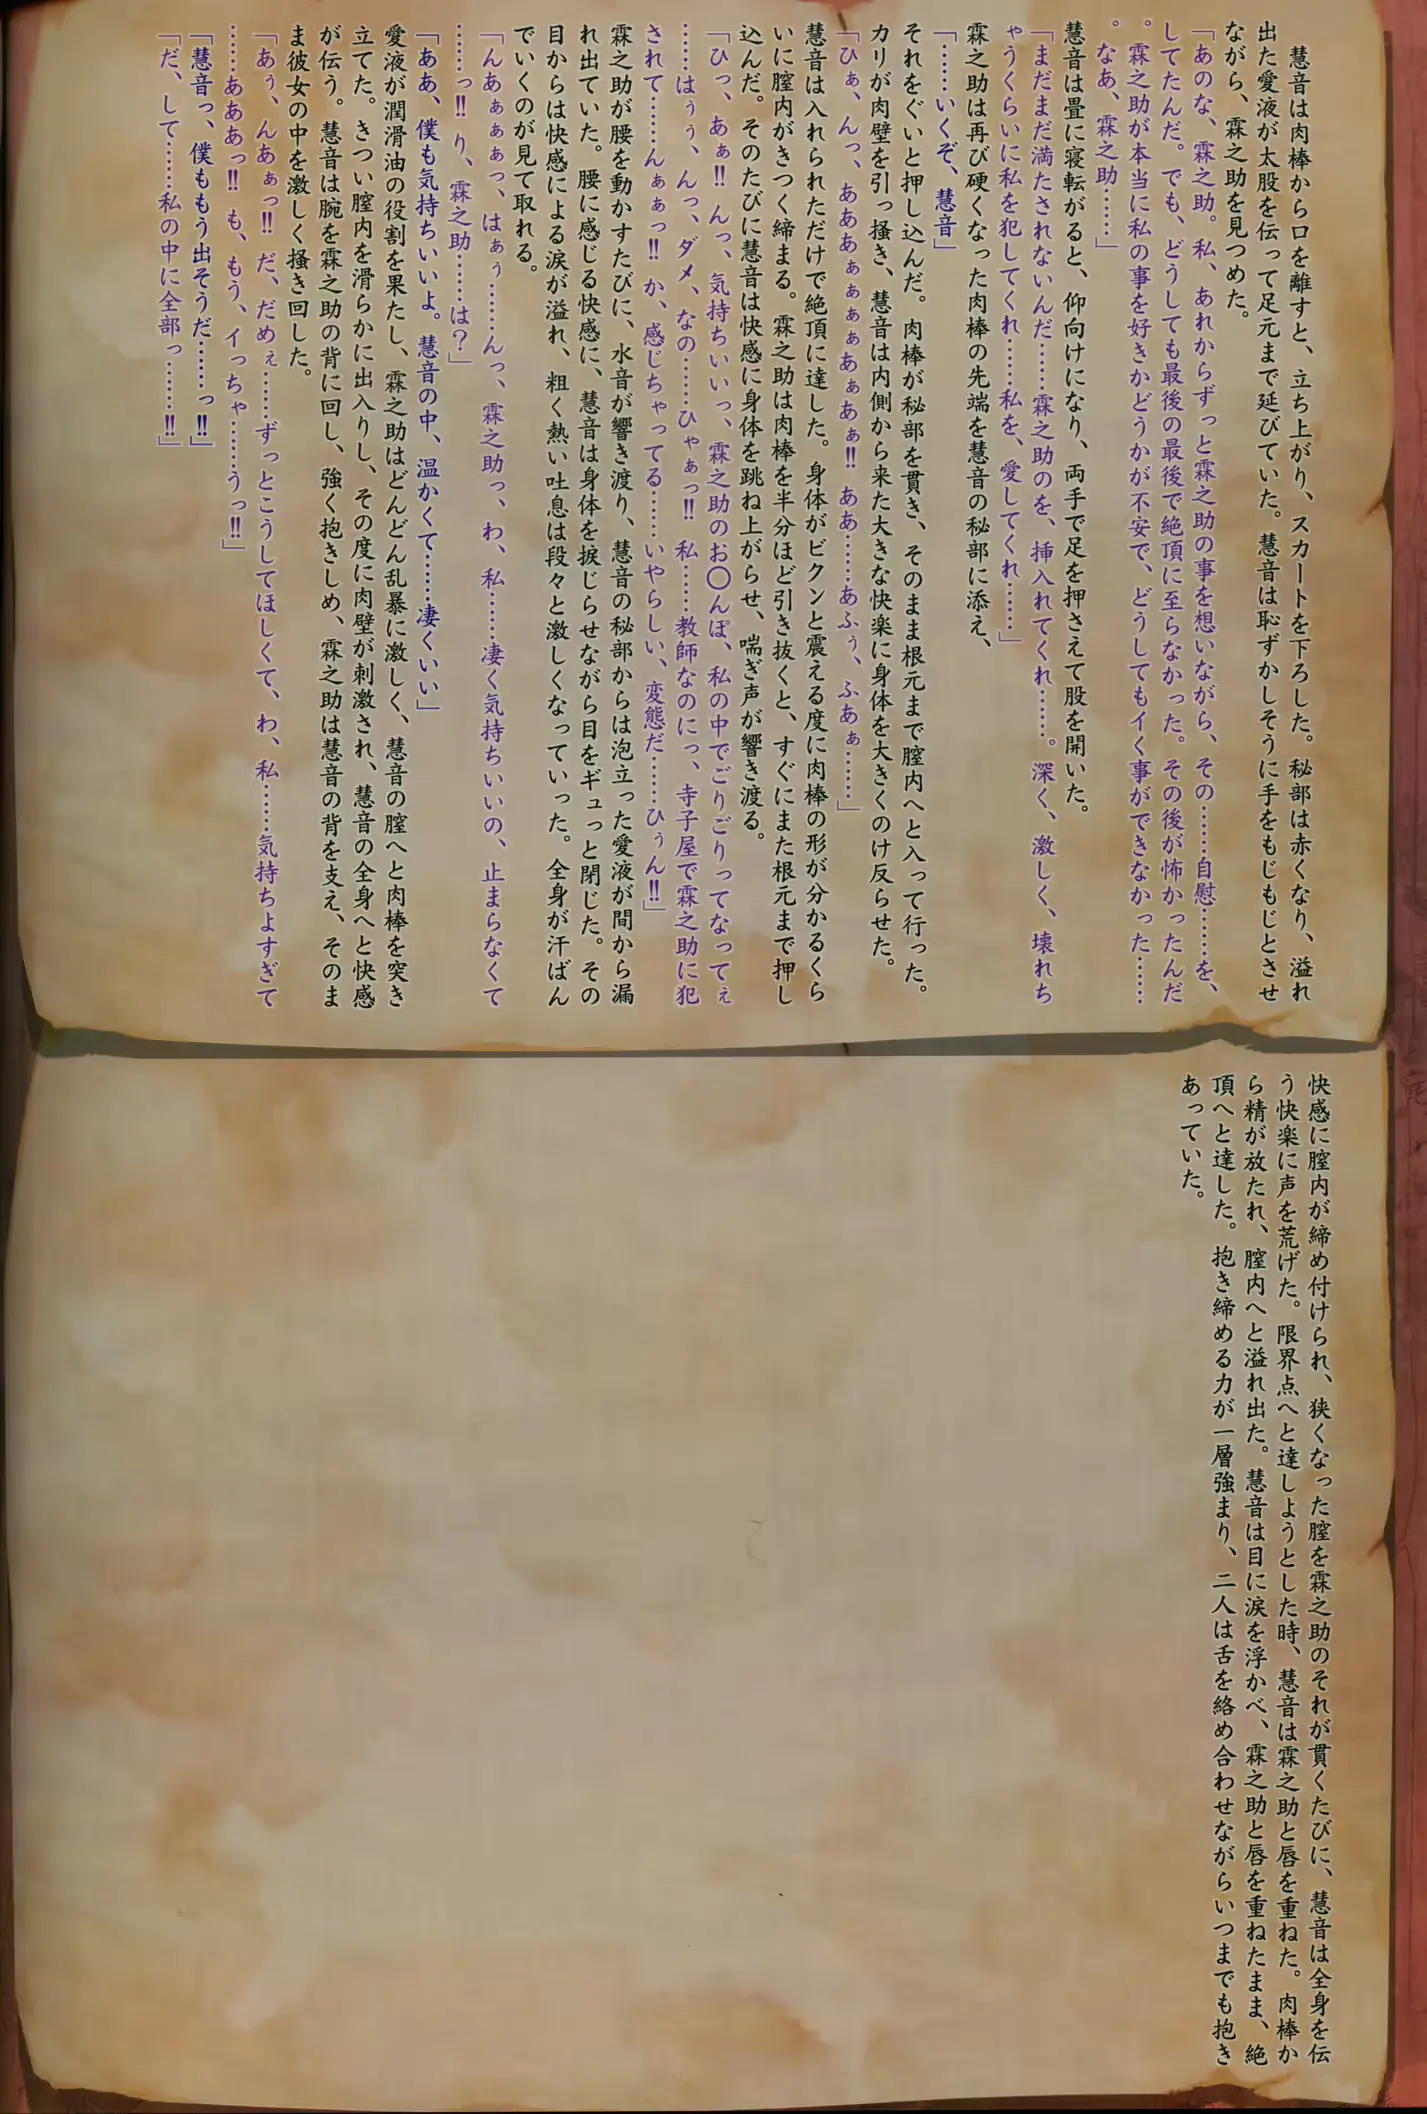 慧音は肉棒から口を離すと、立ち上がり、スカートを下ろした。秘部は赤くなり、溢れ
出た愛液が太股を伝って足元まで延びていた。慧音は恥ずかしそうに手をもじもじとさせ
ながら、霖之助を見つめた。
「あのな、霖之助。私、あれからずっと霖之助の事を想いながら、その………自慰………を、
してたんだ。でも、どうしても最後の最後で絶頂に至らなかった。その後が怖かったんだ
。霖之助が本当に私の事を好きかどうかが不安で、どうしてもイく事ができなかった……
。なあ、霖之助……」
慧音は畳に寝転がると、仰向けになり、両手で足を押さえて股を開いた。
「まだまだ満たされないんだ……霖之助のを、挿入れてくれ……。深く、激しく、壊れち
ゃうくらいに私を犯してくれ……私を、愛してくれ……」
霖之助は再び硬くなった肉棒の先端を慧音の秘部に添え、
「……いくぞ、慧音」
それをぐいと押し込んだ。肉棒が秘部を貫き、そのまま根元まで膣内へと入って行った。
カリが肉壁を引っ掻き、慧音は内側から来た大きな快楽に身体を大きくのけ反らせた。
「ひぁ、んっ、あああぁぁぁあぁあぁ!! ああ……あふぅ、ふあぁ……」
慧音は入れられただけで絶頂に達した。身体がビクンと震える度に肉棒の形が分かるくら
いに膣内がきつく締まる。霖之助は肉棒を半分ほど引き抜くと、すぐにまた根元まで押し
込んだ。そのたびに慧音は快感に身体を跳ね上がらせ、喘ぎ声が響き渡る。
「ひっ、あぁ!! んっ、気持ちいいっ、霖之助のお◯んぽ、私の中でごりごりってなってぇ
……はぅぅ、んっ、ダメ、なの……ひゃぁっ!! 私……教師なのにっ、寺子屋で霖之助に犯
されて……んぁぁっ!! か、感じちゃってる……いやらしい、変態だ……ひぅん!!」
霖之助が腰を動かすたびに、水音が響き渡り、慧音の秘部からは泡立った愛液が間から漏
れ出ていた。腰に感じる快感に、慧音は身体を捩じらせながら目をギュっと閉じた。その
目からは快感による涙が溢れ、粗く熱い吐息は段々と激しくなっていった。全身が汗ばん
でいくのが見て取れる。
「んあぁぁぁっ、はぁぅ……んっ、霖之助っ、わ、私……凄く気持ちいいの、止まらなくて
……っ!! り、霖之助……は?」
「ああ、僕も気持ちいいよ。慧音の中、温かくて……凄くいい」
愛液が潤滑油の役割を果たし、霖之助はどんどん乱暴に激しく、慧音の膣へと肉棒を突き
立てた。きつい膣内を滑らかに出入りし、その度に肉壁が刺激され、慧音の全身へと快感
が伝う。慧音は腕を霖之助の背に回し、強く抱きしめ、霖之助は慧音の背を支え、そのま
ま彼女の中を激しく掻き回した。
「あぅ、んあぁっ!! だ、だめぇ……ずっとこうしてほしくて、わ、私……気持ちよすぎて
……あああっ!! も、もう、イっちゃ……うっ!!」
「慧音っ、僕ももう出そうだ……っ!!」
「だ、して……私の中に全部っ……!!」
快感に膣内が締め付けられ、狭くなった膣を霖之助のそれが貫くたびに、慧音は全身を伝
う快楽に声を荒げた。限界点へと達しようとした時、慧音は霖之助と唇を重ねた。肉棒か
ら精が放たれ、膣内へと溢れ出た。慧音は目に涙を浮かべ、霖之助と唇を重ねたまま、絶
頂へと達した。抱き締める力が一層強まり、二人は舌を絡め合わせながらいつまでも抱き
あっていた。